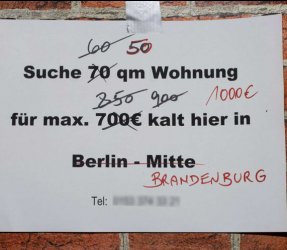 60 50
Suche 70 qm Wohnung
350 900 1000€
für max. 700€ kalt hier in
Berlin - Mitte
BRANDENBURG
Tel: